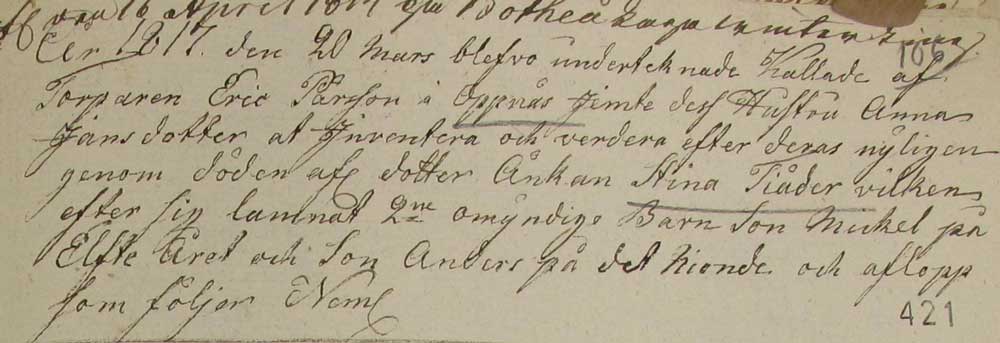 16 April 1817
106
År 1817. den 20 Mars blefvo undertecknade Kallade af
Torparen Eric Parsson i Öppnäs Jimte dess Hustru Anna
Jansdotter at Jnventera och verdera efter deras nyligen
genom döden afl dotter Änkan Stina Tiäder vilken
efter sig lamnat 2ne omyndige Barn Son Mickel på
Elfte Året och Son Anders på det Nionde och aflopp
som följer Neml
421